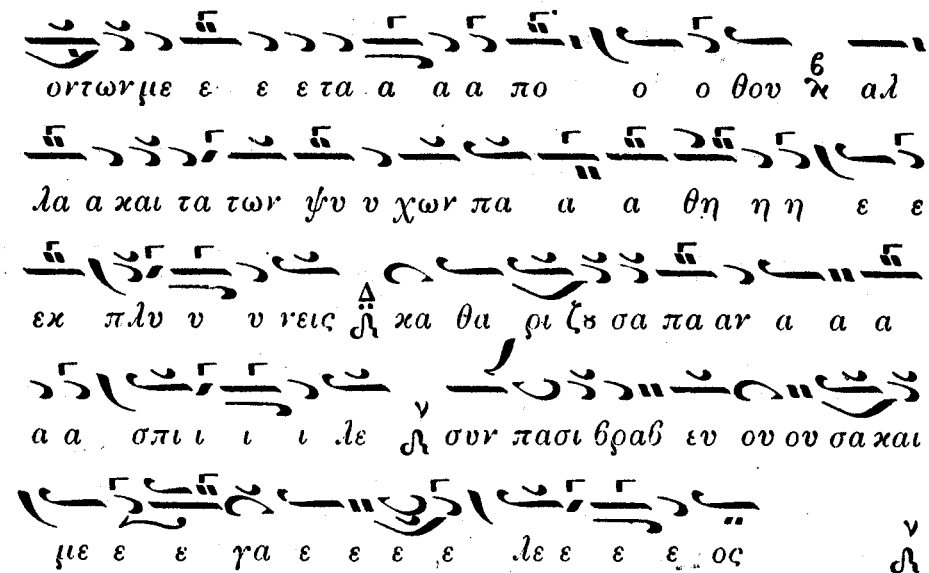 οντων με ε ε ε τα α α α πο ο ο θου αλ
λα α και τα των ψυ υ χων πα α α θη η η ε ε
εκ πλυ υ υ νεις κα θα ρι ζȣ σα πα αν α α α
α α σπι ι ι ι λε συν πασι βραβ ευ ου ου σα και
με ε ε γα ε ε ε ε λε ε ε ε ος